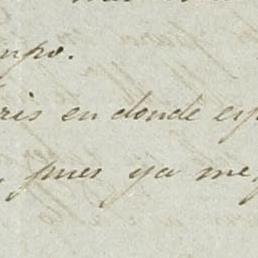 mpo.
ris en donde esp
, pues ya me